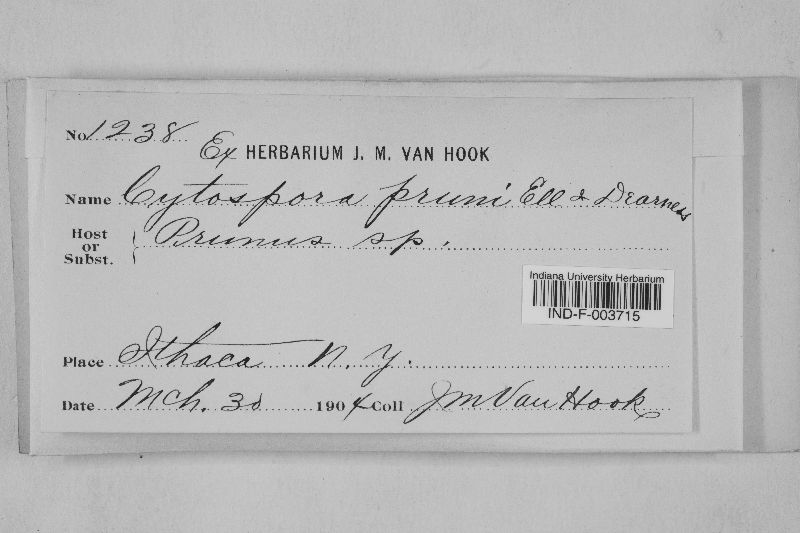 No. 1238
Ex HERBARIUM J. M. VAN HOOK
Name Cytospora pruni Ell & Dearness
Host or Subst. Prunus sp.
Indiana University Herbarium
IND-F-003715
Place Ithaca N. Y.
Date Mch. 30 1904 Coll J M Van Hook